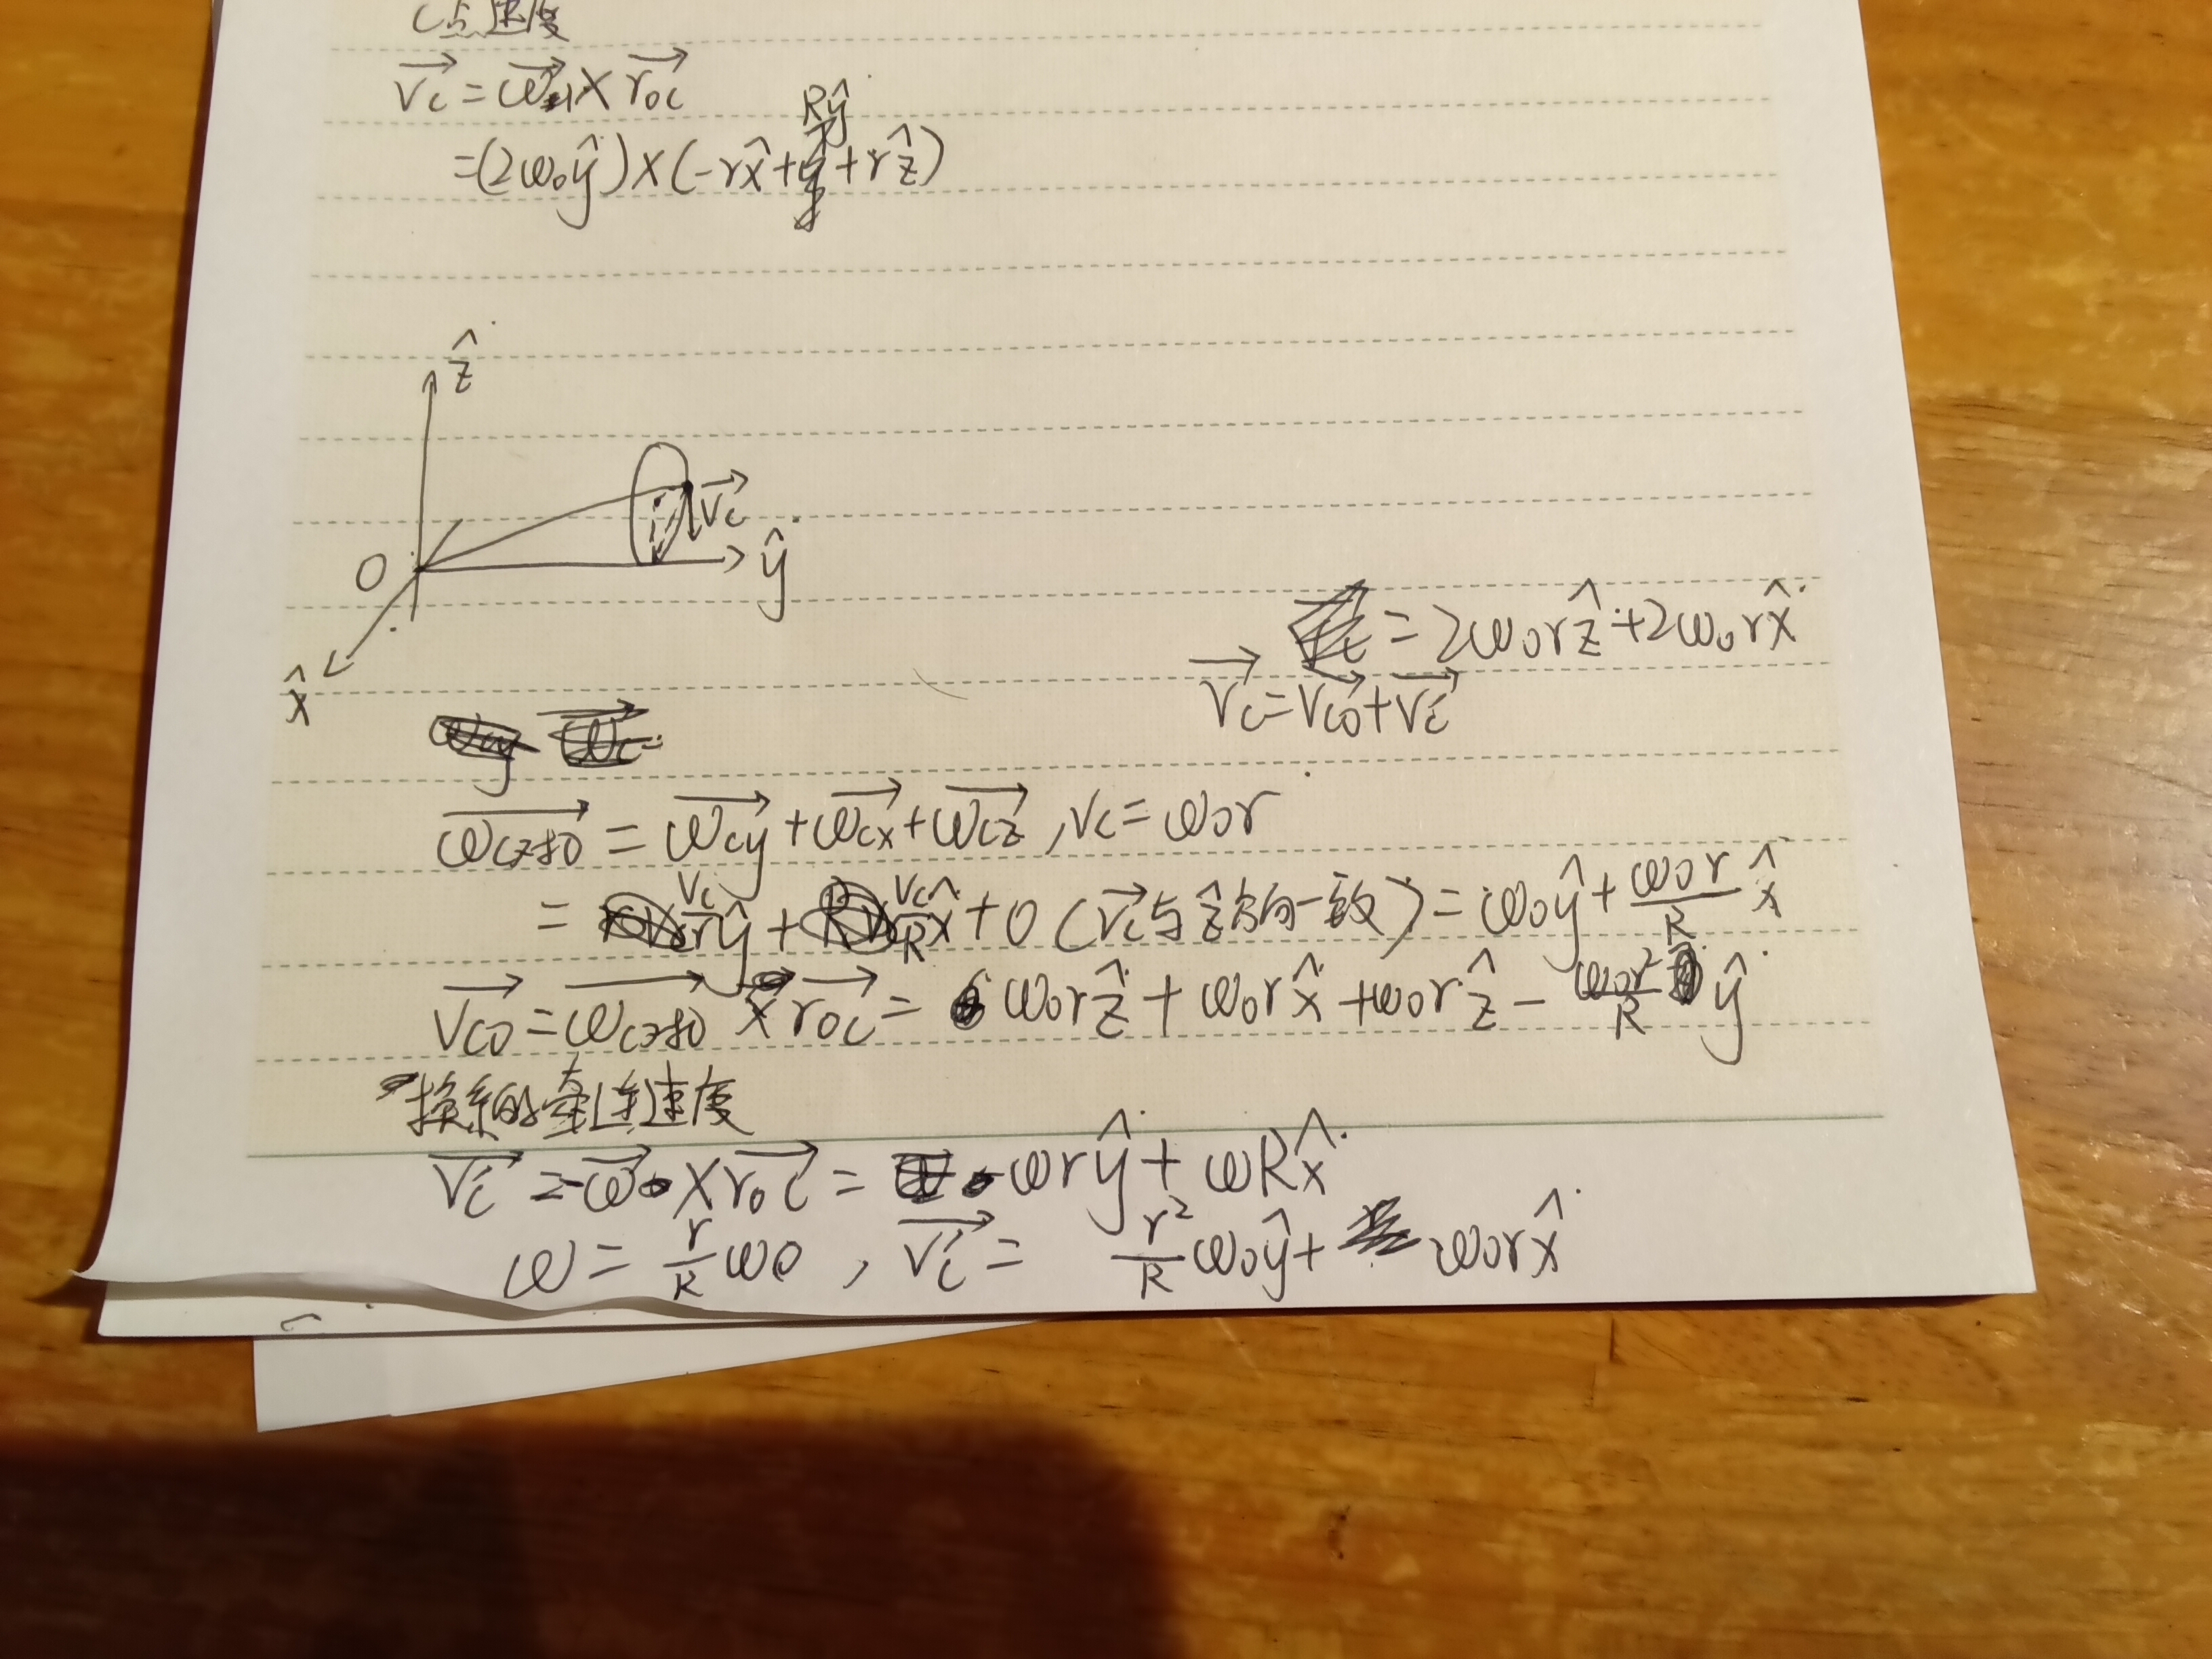 C点速度
vc = ω × roc
= (2ω0ŷ) × (-rx̂ + Rŷ + rẑ)
ẑ
vc
O
ŷ
x̂
= 2ω0rẑ + 2ω0rx̂
vc = vc0 + vc'
= ωcy + ωcx + ωcz , vc = ω0r
= vc/r ŷ + vc/R x̂ + 0 (vc与ẑ方向一致) = ω0ŷ + ω0r/R x̂
× roc = ω0rẑ + ω0rx̂ + ω0rẑ - ω0r²/R ŷ
换系的牵连速度
vc' = -ω × roc = ωrŷ + ωRx̂
ω = r/R ω0 , vc' = r²/R ω0ŷ + ω0rx̂